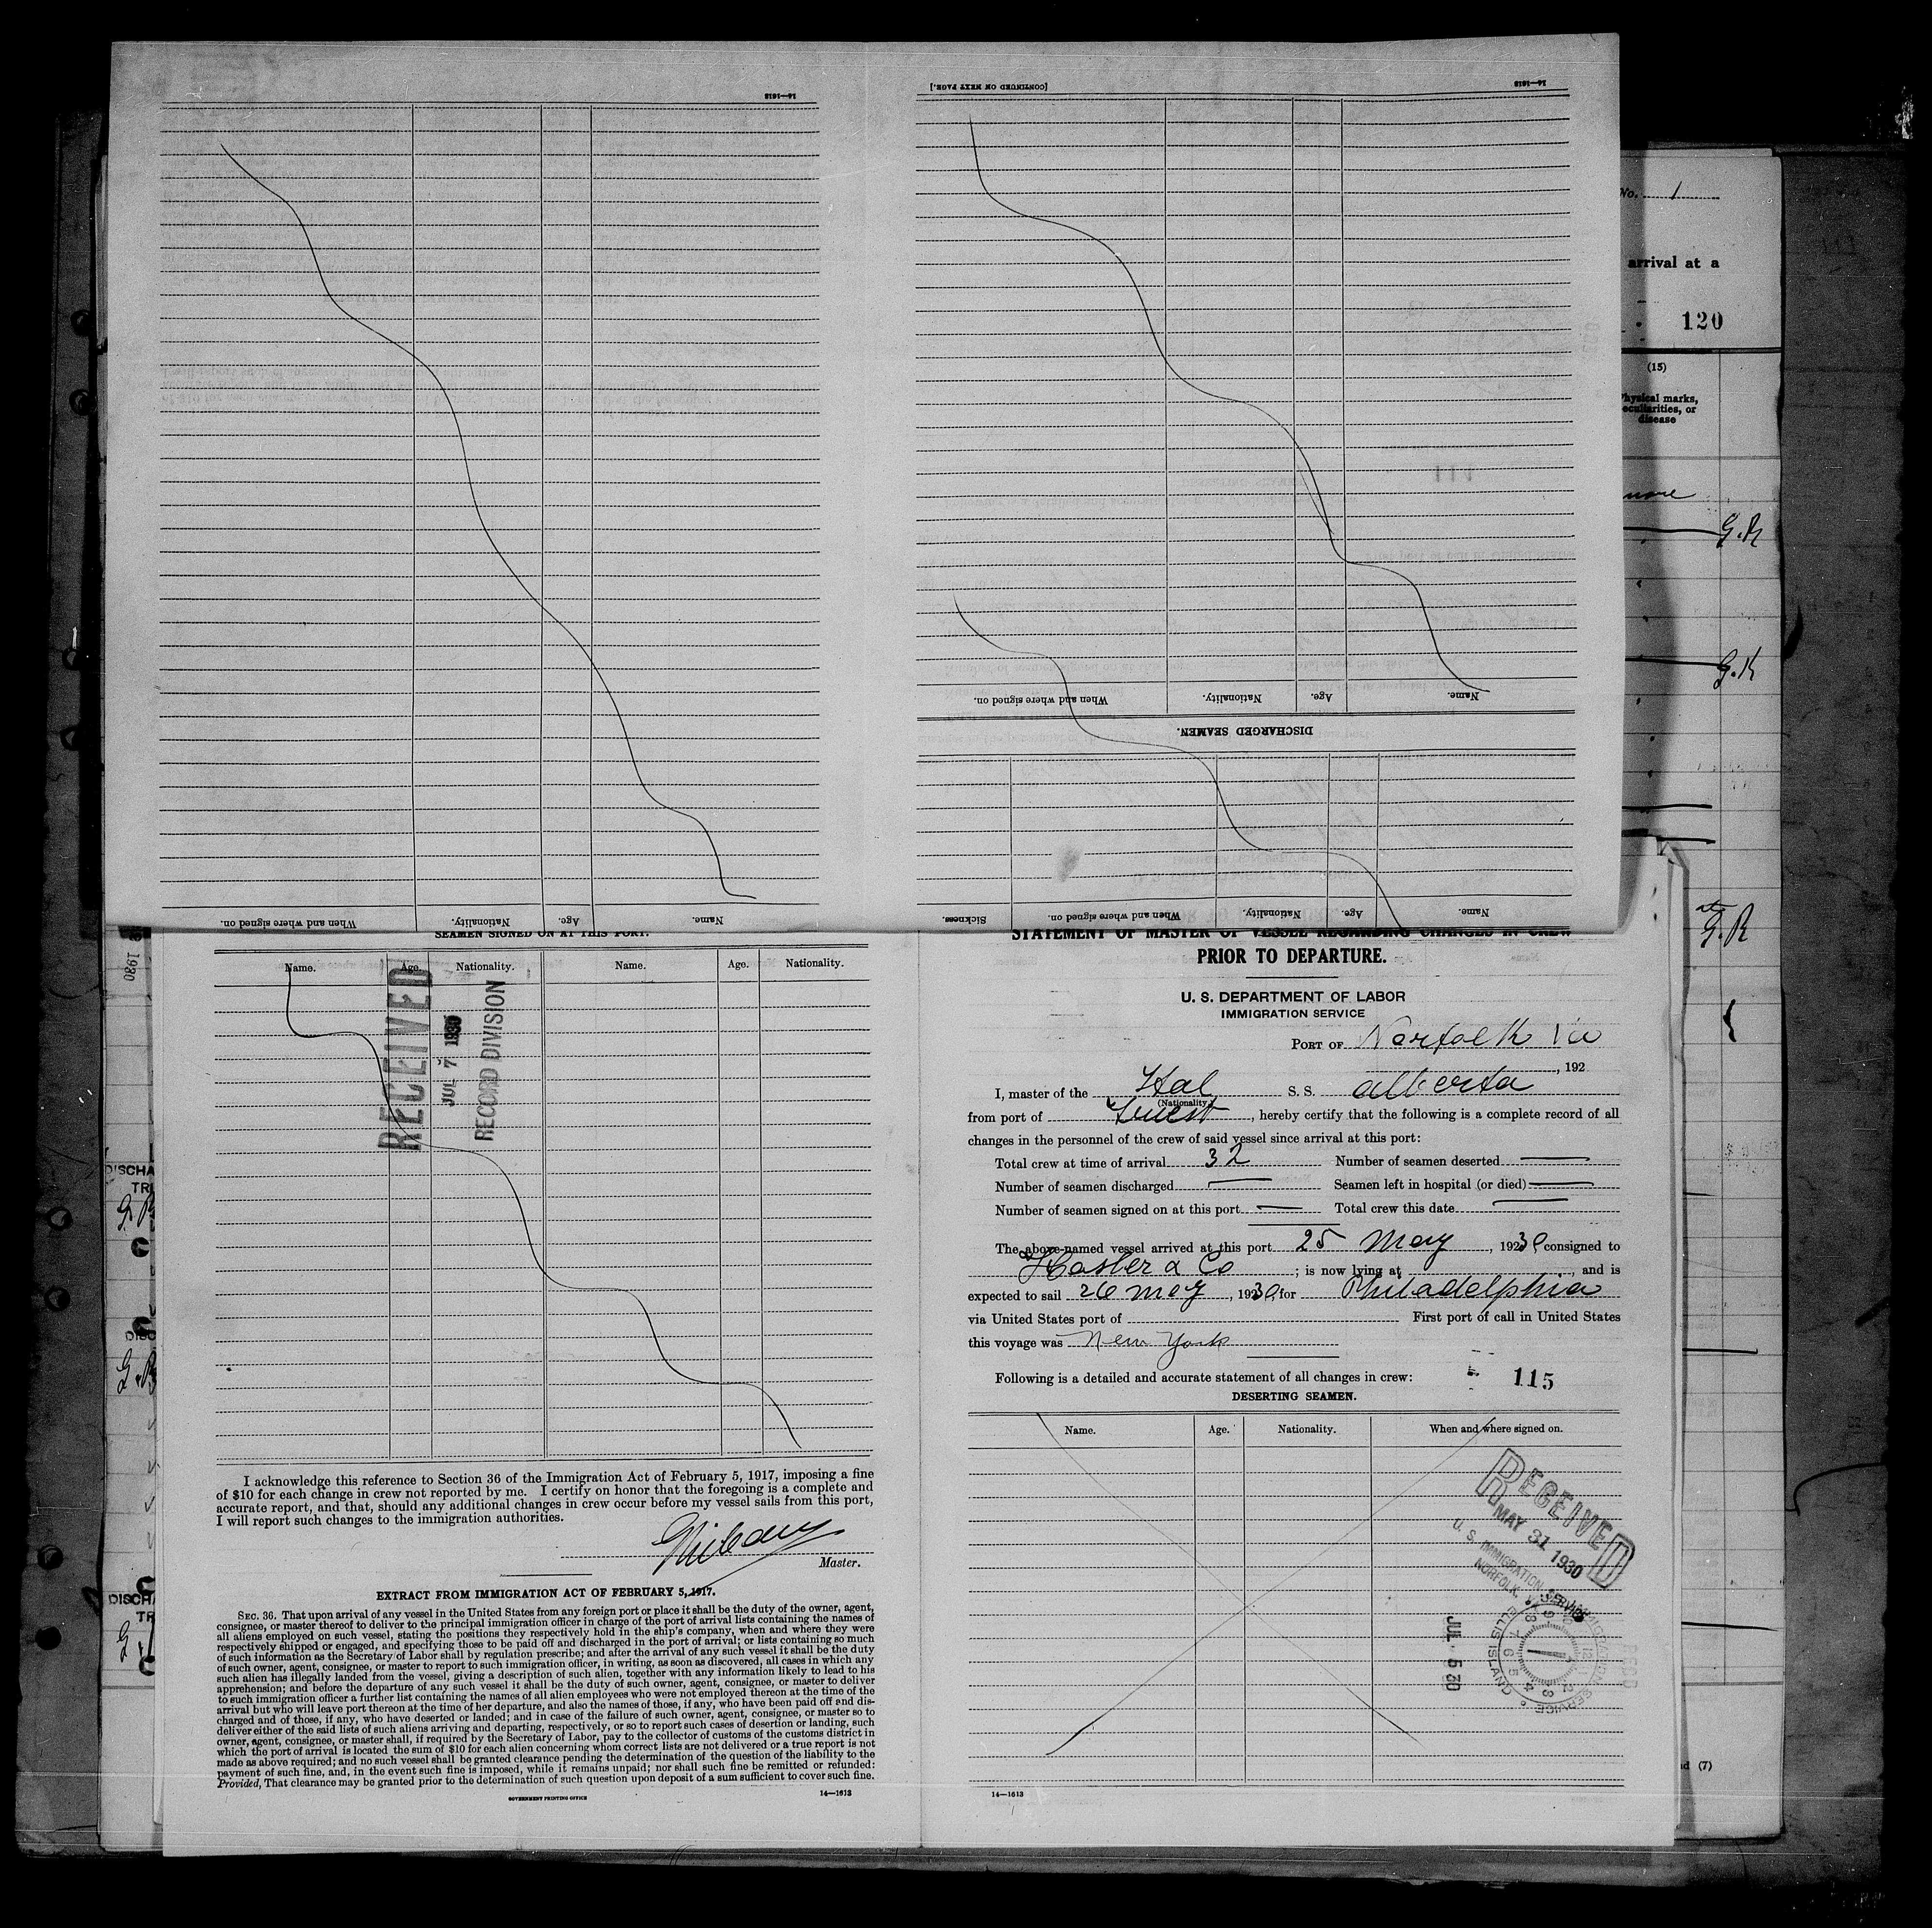 [CONTINUED ON NEXT PAGE.]
14—1613
14—1613
No. 1
arrival at a
120
(15)
Physical marks,
peculiarities, or
disease
none
G.R
G.K
G.R
Name. Age. Nationality. When and where signed on.
DISCHARGED SEAMEN.
Name. Age. Nationality. When and where signed on.
Name. Age. Nationality. When and where signed on. Sickness.
1930
SEAMEN SIGNED ON AT THIS PORT.
Name. Age. Nationality. Name. Age. Nationality.
RECEIVED
JUL 7 1930
RECORD DIVISION
I acknowledge this reference to Section 36 of the Immigration Act of February 5, 1917, imposing a fine
of $10 for each change in crew not reported by me. I certify on honor that the foregoing is a complete and
accurate report, and that, should any additional changes in crew occur before my vessel sails from this port,
I will report such changes to the immigration authorities.
Master.
EXTRACT FROM IMMIGRATION ACT OF FEBRUARY 5, 1917.
SEC. 36. That upon arrival of any vessel in the United States from any foreign port or place it shall be the duty of the owner, agent,
consignee, or master thereof to deliver to the principal immigration officer in charge of the port of arrival lists containing the names of
all aliens employed on such vessel, stating the positions they respectively hold in the ship's company, when and where they were
respectively shipped or engaged, and specifying those to be paid off and discharged in the port of arrival; or lists containing so much
of such information as the Secretary of Labor shall by regulation prescribe; and after the arrival of any such vessel it shall be the duty
of such owner, agent, consignee, or master to report to such immigration officer, in writing, as soon as discovered, all cases in which any
such alien has illegally landed from the vessel, giving a description of such alien, together with any information likely to lead to his
apprehension; and before the departure of any such vessel it shall be the duty of such owner, agent, consignee, or master to deliver
to such immigration officer a further list containing the names of all alien employees who were not employed thereon at the time of the
arrival but who will leave port thereon at the time of her departure, and also the names of those, if any, who have been paid off and dis-
charged and of those, if any, who have deserted or landed; and in case of the failure of such owner, agent, consignee, or master so to
deliver either of the said lists of such aliens arriving and departing, respectively, or so to report such cases of desertion or landing, such
owner, agent, consignee, or master shall, if required by the Secretary of Labor, pay to the collector of customs of the customs district in
which the port of arrival is located the sum of $10 for each alien concerning whom correct lists are not delivered or a true report is not
made as above required; and no such vessel shall be granted clearance pending the determination of the question of the liability to the
payment of such fine, and, in the event such fine is imposed, while it remains unpaid; nor shall such fine be remitted or refunded:
Provided, That clearance may be granted prior to the determination of such question upon deposit of a sum sufficient to cover such fine.
GOVERNMENT PRINTING OFFICE
14—1613
STATEMENT OF MASTER OF VESSEL REGARDING CHANGES IN CREW
PRIOR TO DEPARTURE.
U. S. DEPARTMENT OF LABOR
IMMIGRATION SERVICE
PORT OF Norfolk Va
, 192
I, master of the Ital S. S. Alberta
(Nationality)
from port of , hereby certify that the following is a complete record of all
changes in the personnel of the crew of said vessel since arrival at this port:
Total crew at time of arrival 32 Number of seamen deserted
Number of seamen discharged Seamen left in hospital (or died)
Number of seamen signed on at this port Total crew this date
The above-named vessel arrived at this port 25 May, 1930, consigned to
Hasler & Co; is now lying at , and is
expected to sail 26 may, 1930, for Philadelphia
via United States port of First port of call in United States
this voyage was New York
Following is a detailed and accurate statement of all changes in crew:
115
DESERTING SEAMEN.
Name. Age. Nationality. When and where signed on.
RECEIVED
MAY 31 1930
U. S. IMMIGRATION SERVICE
NORFOLK,
JUL 5 30
IMMIGRATION SERVICE
ELLIS ISLAND
14—1613